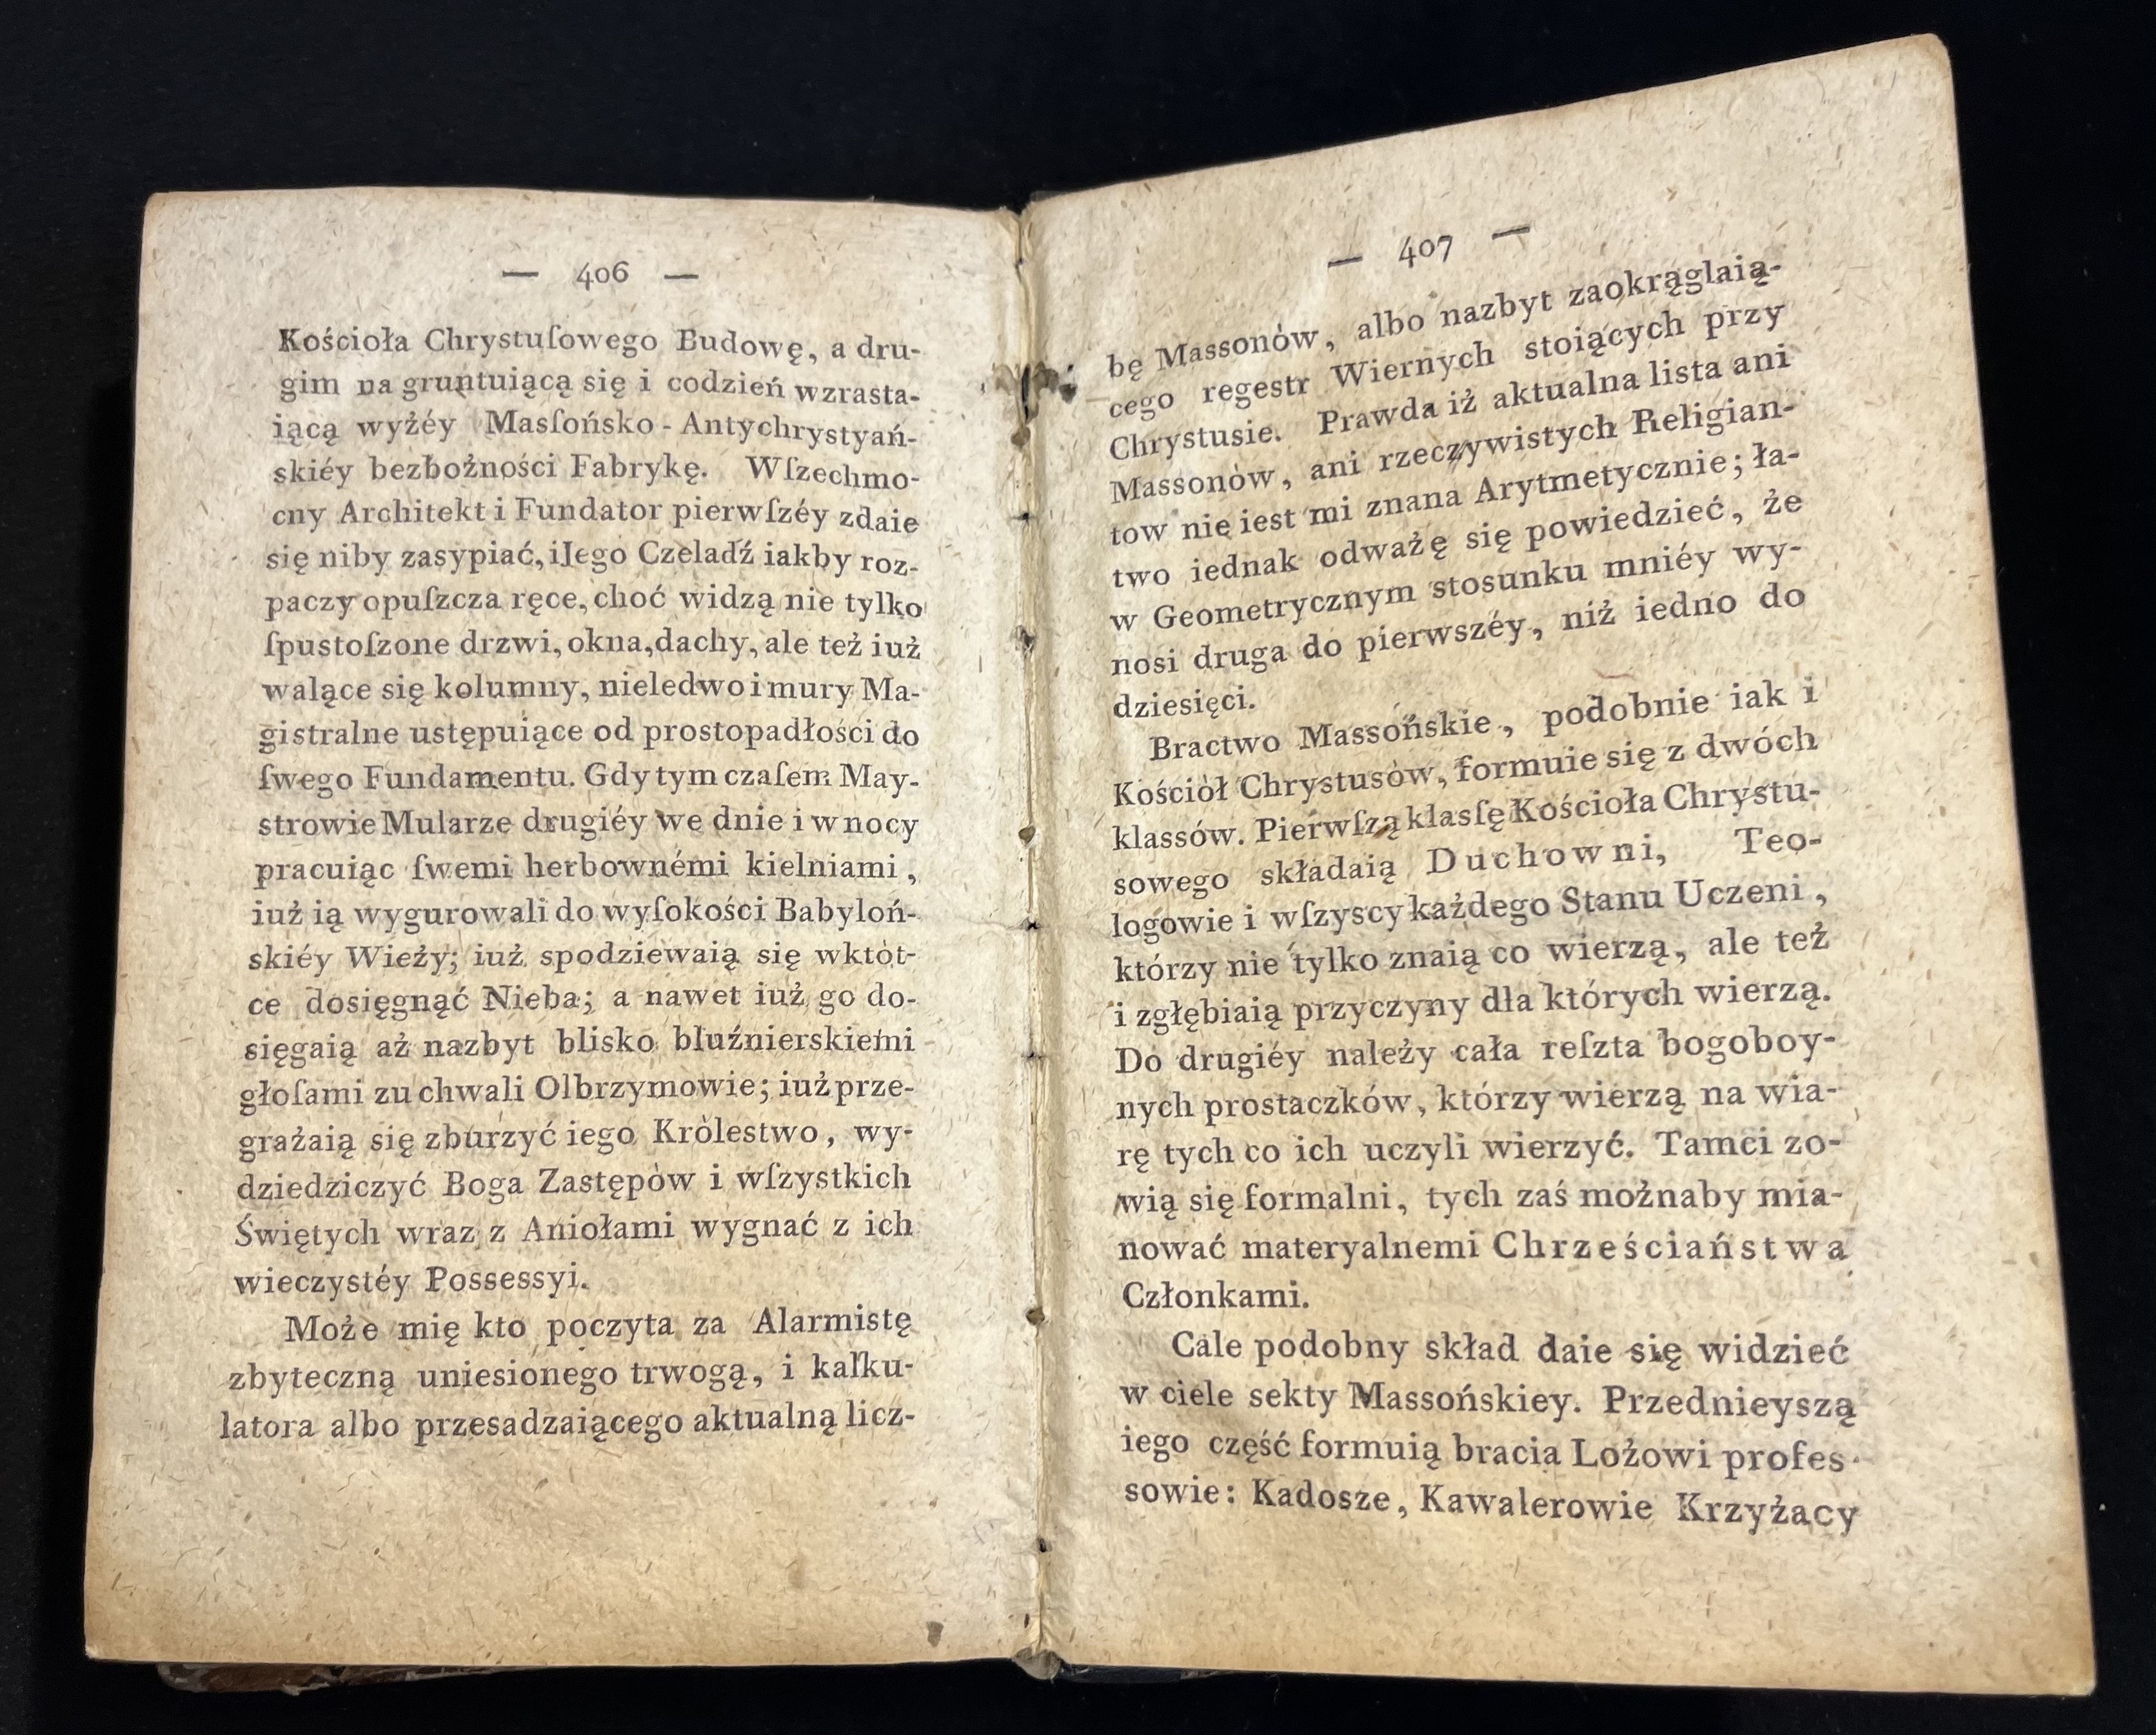 — 406 —
Kościoła Chrystuſowego Budowę, a dru-
gim na gruntuiącą się i codzień wzrasta-
iącą wyżéy Masſońsko - Antychrystyań-
skiéy bezbożności Fabrykę. Wſzechmo-
cny Architekt i Fundator pierwſzéy zdaie
się niby zasypiać, i Iego Czeladź iakby roz-
paczy opuſzcza ręce, choć widzą nie tylko
ſpustoſzone drzwi, okna, dachy, ale też iuż
walące się kolumny, nieledwo i mury Ma-
gistralne ustępuiące od prostopadłości do
ſwego Fundamentu. Gdy tym czaſem May-
strowie Mularze drugiéy we dnie i w nocy
pracuiąc ſwemi herbownémi kielniami,
iuż ią wygurowali do wyſokości Babyloń-
skiéy Wieży; iuż spodziewaią się wktót-
ce dosięgnąć Nieba; a nawet iuż go do-
sięgaią aż nazbyt blisko bluźnierskiemi
głoſami zuchwali Olbrzymowie; iuż prze-
grażaią się zburzyć iego Królestwo, wy-
dziedziczyć Boga Zastępów i wſzystkich
Świętych wraz z Aniołami wygnać z ich
wieczystéy Possessyi.
Może mię kto poczyta za Alarmistę
zbyteczną uniesionego trwogą, i kalku-
latora albo przesadzaiącego aktualną licz-
— 407 —
bę Massonów, albo nazbyt zaokrąglaią-
cego regestr Wiernych stoiących przy
Chrystusie. Prawda iż aktualna lista ani
Massonów, ani rzeczywistych Religian-
tow nie iest mi znana Arytmetycznie; ła-
two iednak odważę się powiedzieć, że
w Geometrycznym stosunku mniéy wy-
nosi druga do pierwszéy, niż iedno do
dziesięci.
Bractwo Massońskie, podobnie iak i
Kościół Chrystusów, formuie się z dwóch
klassów. Pierwſzą klasſę Kościoła Chrystu-
sowego składaią Duchowni, Teo-
logowie i wſzyscy każdego Stanu Uczeni,
którzy nie tylko znaią co wierzą, ale też
i zgłębiaią przyczyny dla których wierzą.
Do drugiéy należy cała reſzta bogoboy-
nych prostaczków, którzy wierzą na wia-
rę tych co ich uczyli wierzyć. Tamci zo-
wią się formalni, tych zaś możnaby mia-
nować materyalnemi Chrześciaństwa
Członkami.
Cale podobny skład daie się widzieć
w ciele sekty Massońskiey. Przednieyszą
iego część formuią bracia Lożowi profes-
sowie: Kadosze, Kawalerowie Krzyżacy